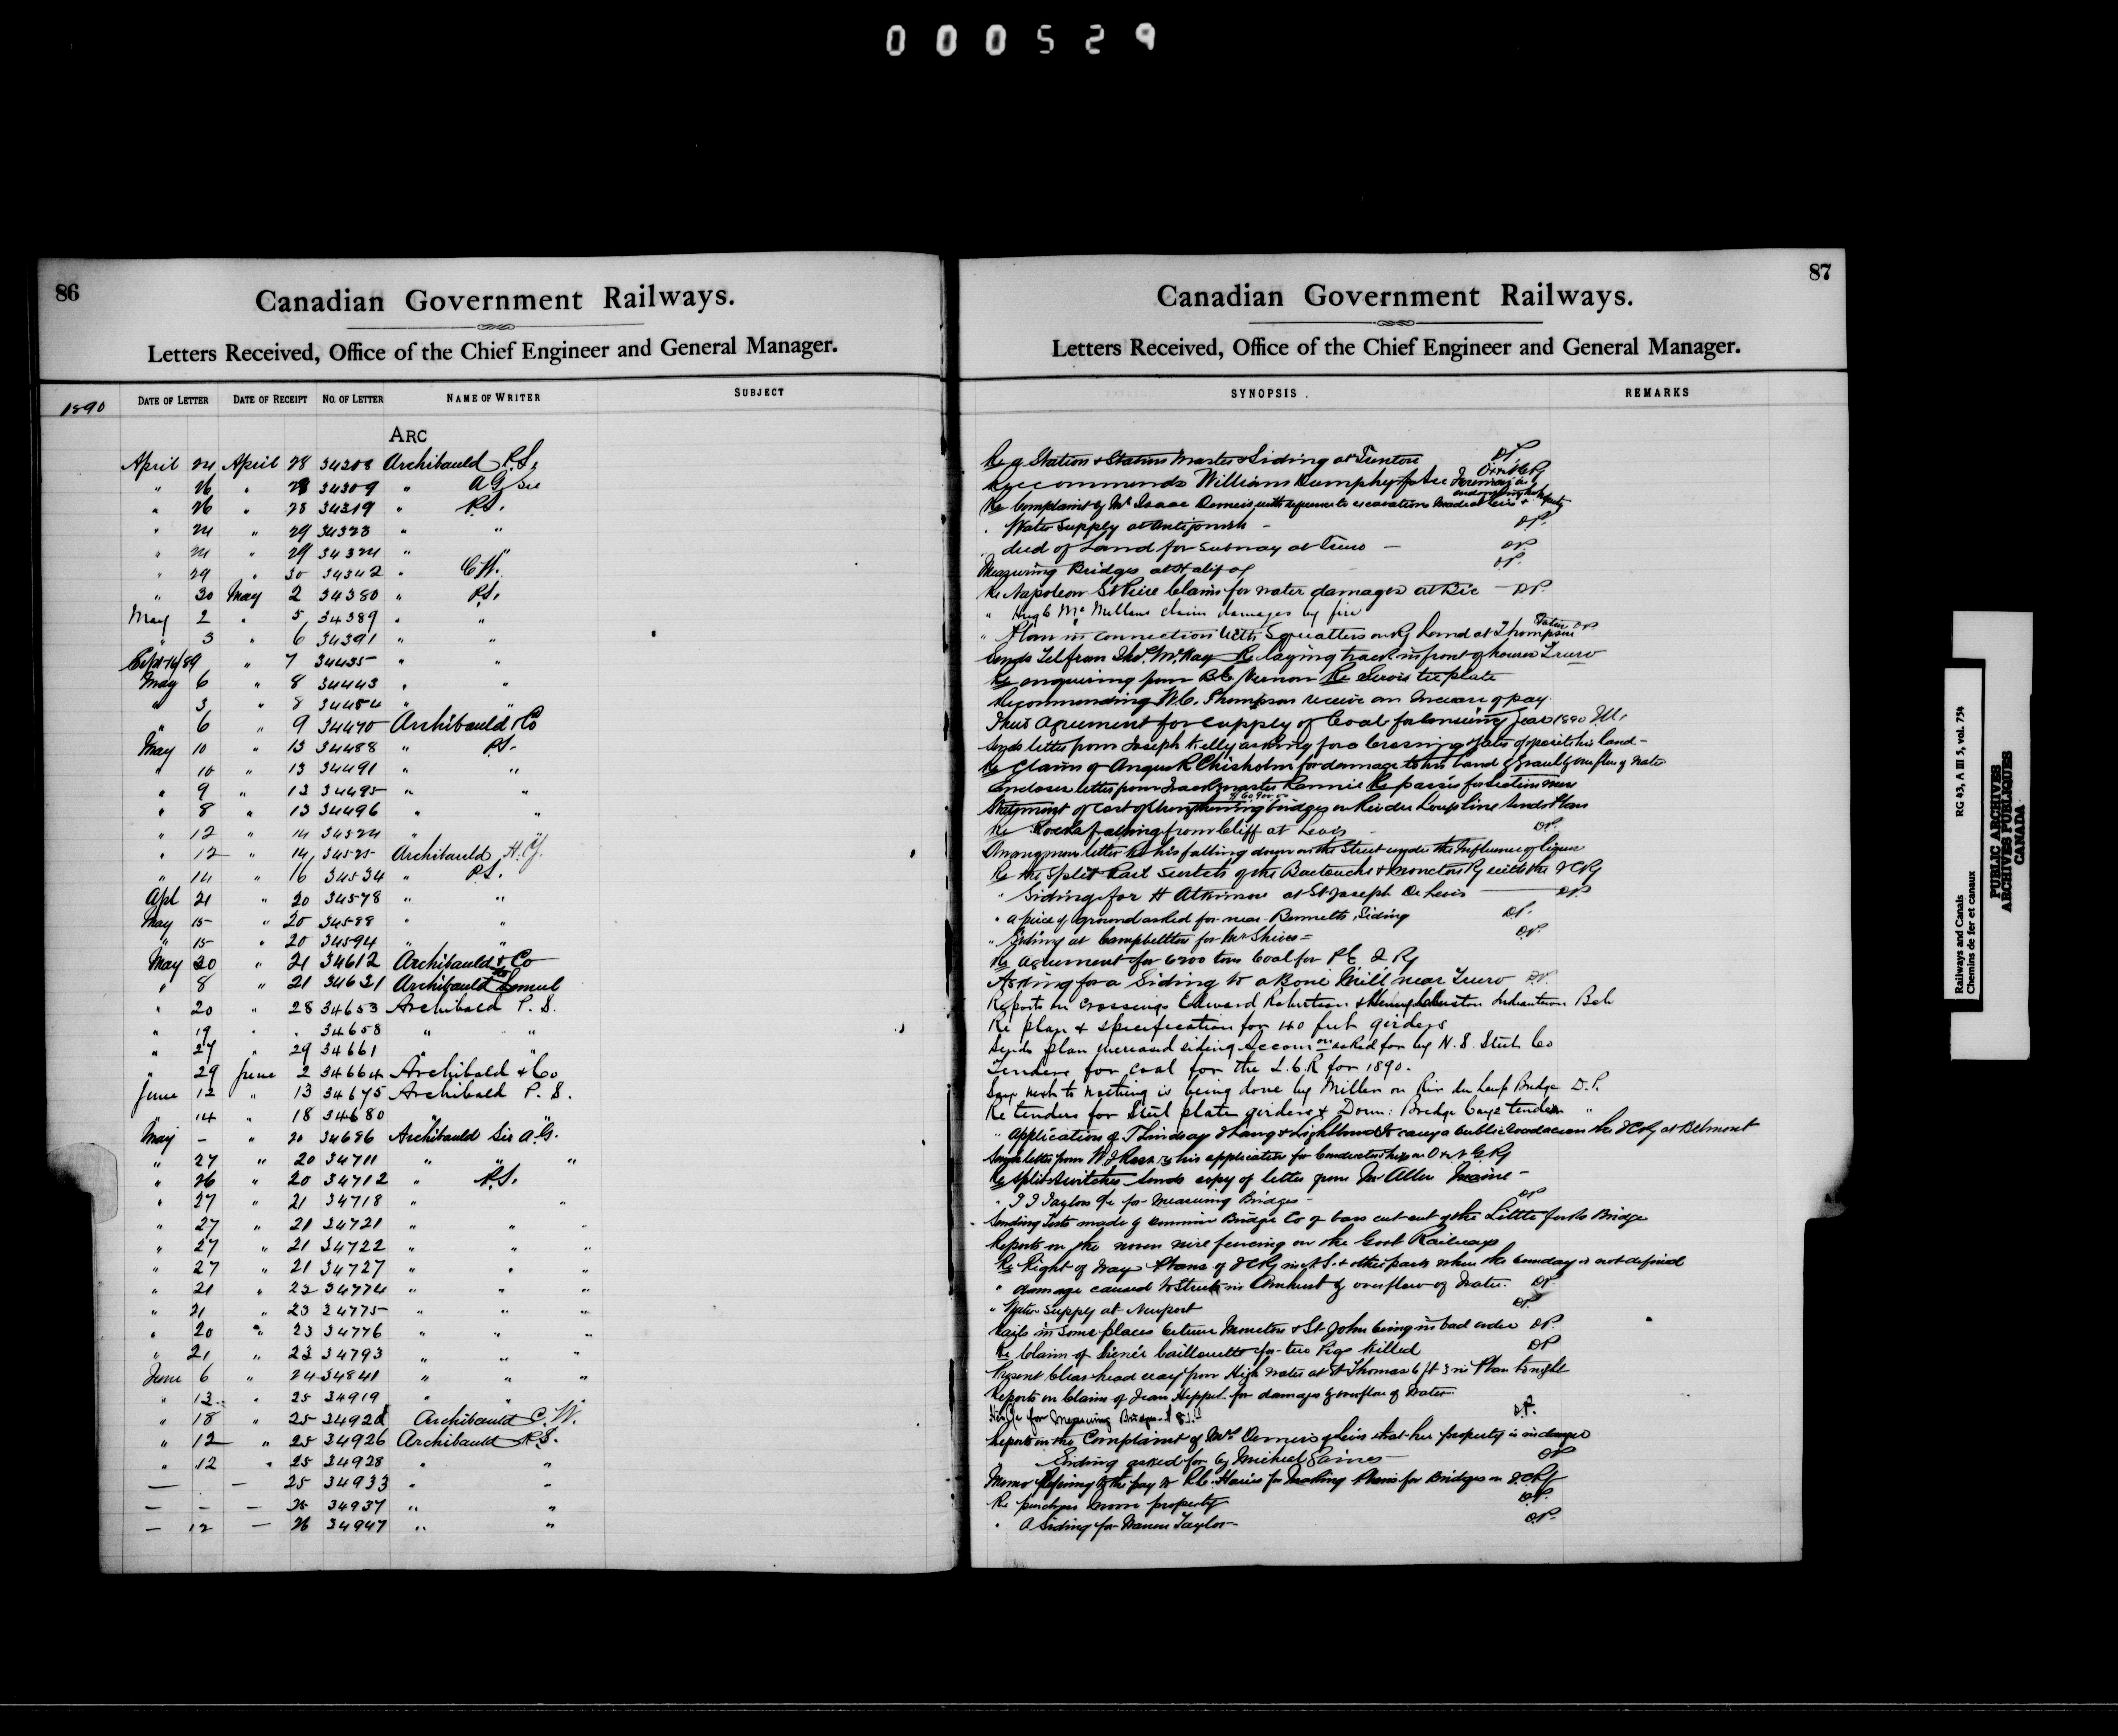 000529
86
Canadian Government Railways.
Letters Received, Office of the Chief Engineer and General Manager.
1890 DATE OF LETTER DATE OF RECEIPT NO. OF LETTER NAME OF WRITER SUBJECT
ARC
April 24 April 28 34308 Archibauld P.S.
" 26 " 28 34309 " A G Sir
" 26 " 28 34319 " P.S.
" 24 " 29 34323 " "
" 24 " 29 34324 " "
" 29 " 30 34342 " C.W.
" 30 May 2 34380 " P.S.
May 2 " 5 34389 " "
" 3 " 6 34391 " "
Sept 16/89 " 7 34435 " "
May 6 " 8 34443 " "
" 3 " 8 34454 " "
" 6 " 9 34470 Archibauld & Co
May 10 " 13 34488 " P.S.
" 10 " 13 34491 " "
" 9 " 13 34495 " "
" 8 " 13 34496 " "
" 12 " 14 34524 "
" 12 " 14 34525 Archibauld H.Y.
" 14 " 16 34534 " P.S.
Apl 21 " 20 34578 " "
May 15 " 20 34588 "
" 15 " 20 34594 " "
May 20 " 21 34612 Archibauld & Co
" 8 " 21 34631 Archibauld Lemuel
" 20 " 28 34653 Archibald P. S.
" 19 " " 34658 " "
" 27 " 29 34661 " "
" 29 June 2 34664 Archibald & Co
June 12 " 13 34675 Archibald P. S.
" 14 " 18 34680 " "
May - " 20 34696 Archibauld Sir A.G.
" 27 " 20 34711 " " "
" 26 " 20 34712 " P.S.
" 27 " 21 34718 " "
" 27 " 21 34721 " " "
" 27 " 21 34722 " " "
" 27 " 21 34727 " " "
" 21 " 23 34774 " " "
" 21 " 23 34775 " " "
" 20 " 23 34776 " " "
" 21 " 23 34793 " " "
June 6 " 24 34841 " " "
" 13 " 25 34919 " "
" 18 " 25 34920 Archibauld C. W.
" 12 " 25 34926 Archibauld P.S.
" 12 " 25 34928 " "
— — 25 34933 " "
— - — 26 34937 " "
— 12 — 26 34947 " "
87
Canadian Government Railways.
Letters Received, Office of the Chief Engineer and General Manager.
SYNOPSIS. REMARKS
Re a Station & Station Master & Siding at Trenton DP
Reccommends William Dumphy for
Re Complaint of Mrs Isaac Demers with reference to excavation made at Levis &
" Water Supply at Antigonish - DP.
" deed of Land for Subway at Truro — DP.
Measuring Bridges at Halifax DP.
Re Napoleon St Pierre Claims for water damages at Bic — DP.
" Hugh McMullens claim damages by fire
" Plan in connection with Squatters on Ry Land at Thompson DP
Sends Tel from Thos. McKay Re laying track in front of houses Truro
Re enquiring from B.C. Vernon Re Servis tie plate
Recommending W.C. Thompson receive an increase of pay.
Their agreement for supply of Coal for Year 1890
Sends letter from Joseph Kelly asking for a Crossing & Gates opposite his land -
Re Claim of Angus R Chisholm for damage to his Land & overflow of water
Encloses letter from Trackmaster Rennie Re passes for Section men
Statement of cost of Strengthening bridges on Riviere du Loup line Sends Plan
Re Rocks falling from Cliff at Levis - DP.
letter Re his falling down on the Street under the Influence of liquor
Re the Split Rail Switch of the Buctouche & Moncton Ry with the ICRy
" Siding for H Atkinson at St Joseph De Levis — DP.
" a piece of ground asked for near Bennetts Siding DP.
" Siding at Campbellton for Mr Shives - DP.
Re agreement for 6200 tons Coal for P E I Ry
Asking for a Siding to a Bone Mill near Truro DP.
Reports on crossings Edward Robertson & Indiantown Bch
Re plan & specification for 40 feet girders
Sends plan increased siding accomon asked for by N. S. Steel Co
Tenders for coal for the I.C.R for 1890.
Says next to nothing is being done by Miller on Riv du Loup Bridge D.P.
Re tenders for Steel plate girders & Dom: Bridge Coys tender "
" Application of T Lindsay to carry a public road across the ICRy at Belmont
Sends letter from W J Ross re his application for Conductorship on
Re Split Switches Sends copy of letter from Mr Allen Maine -
" T J Taylors a/c for Measuring Bridges - DP
Sending Tests made by Dominion Bridge Co of bars cut out of the Little forks Bridge
Reports on the woven wire fencing on the Govt Railways
Re Right of Way Plans of ICRy in N.S. & other parts where the boundary is not defined
" damage caused to Streets in Amherst by overflow of Water. DP
" Water Supply at Newport DP.
Rails in some places between Moncton & St John being in bad order DP.
Re Claim of for two Pigs killed DP
Present Clear head way from High water at St Thomas 6 ft 3 in Plan
Reports on Claim of Jean Heppel for damages by overflow of Water
His a/c for Measuring Bridges D.P.
Reports on the Complaint of Mrs Demers of Levis that her property is in danger
Siding asked for by Michael DP
Memo Refering to the pay to for Making Plans for Bridges on ICRy
Re purchase Moore property DP.
" A Siding for Taylor - DP.
Railways and Canals RG 43, A III 5, vol. 754
Chemins de fer et canaux
PUBLIC ARCHIVES
ARCHIVES PUBLIQUES
CANADA